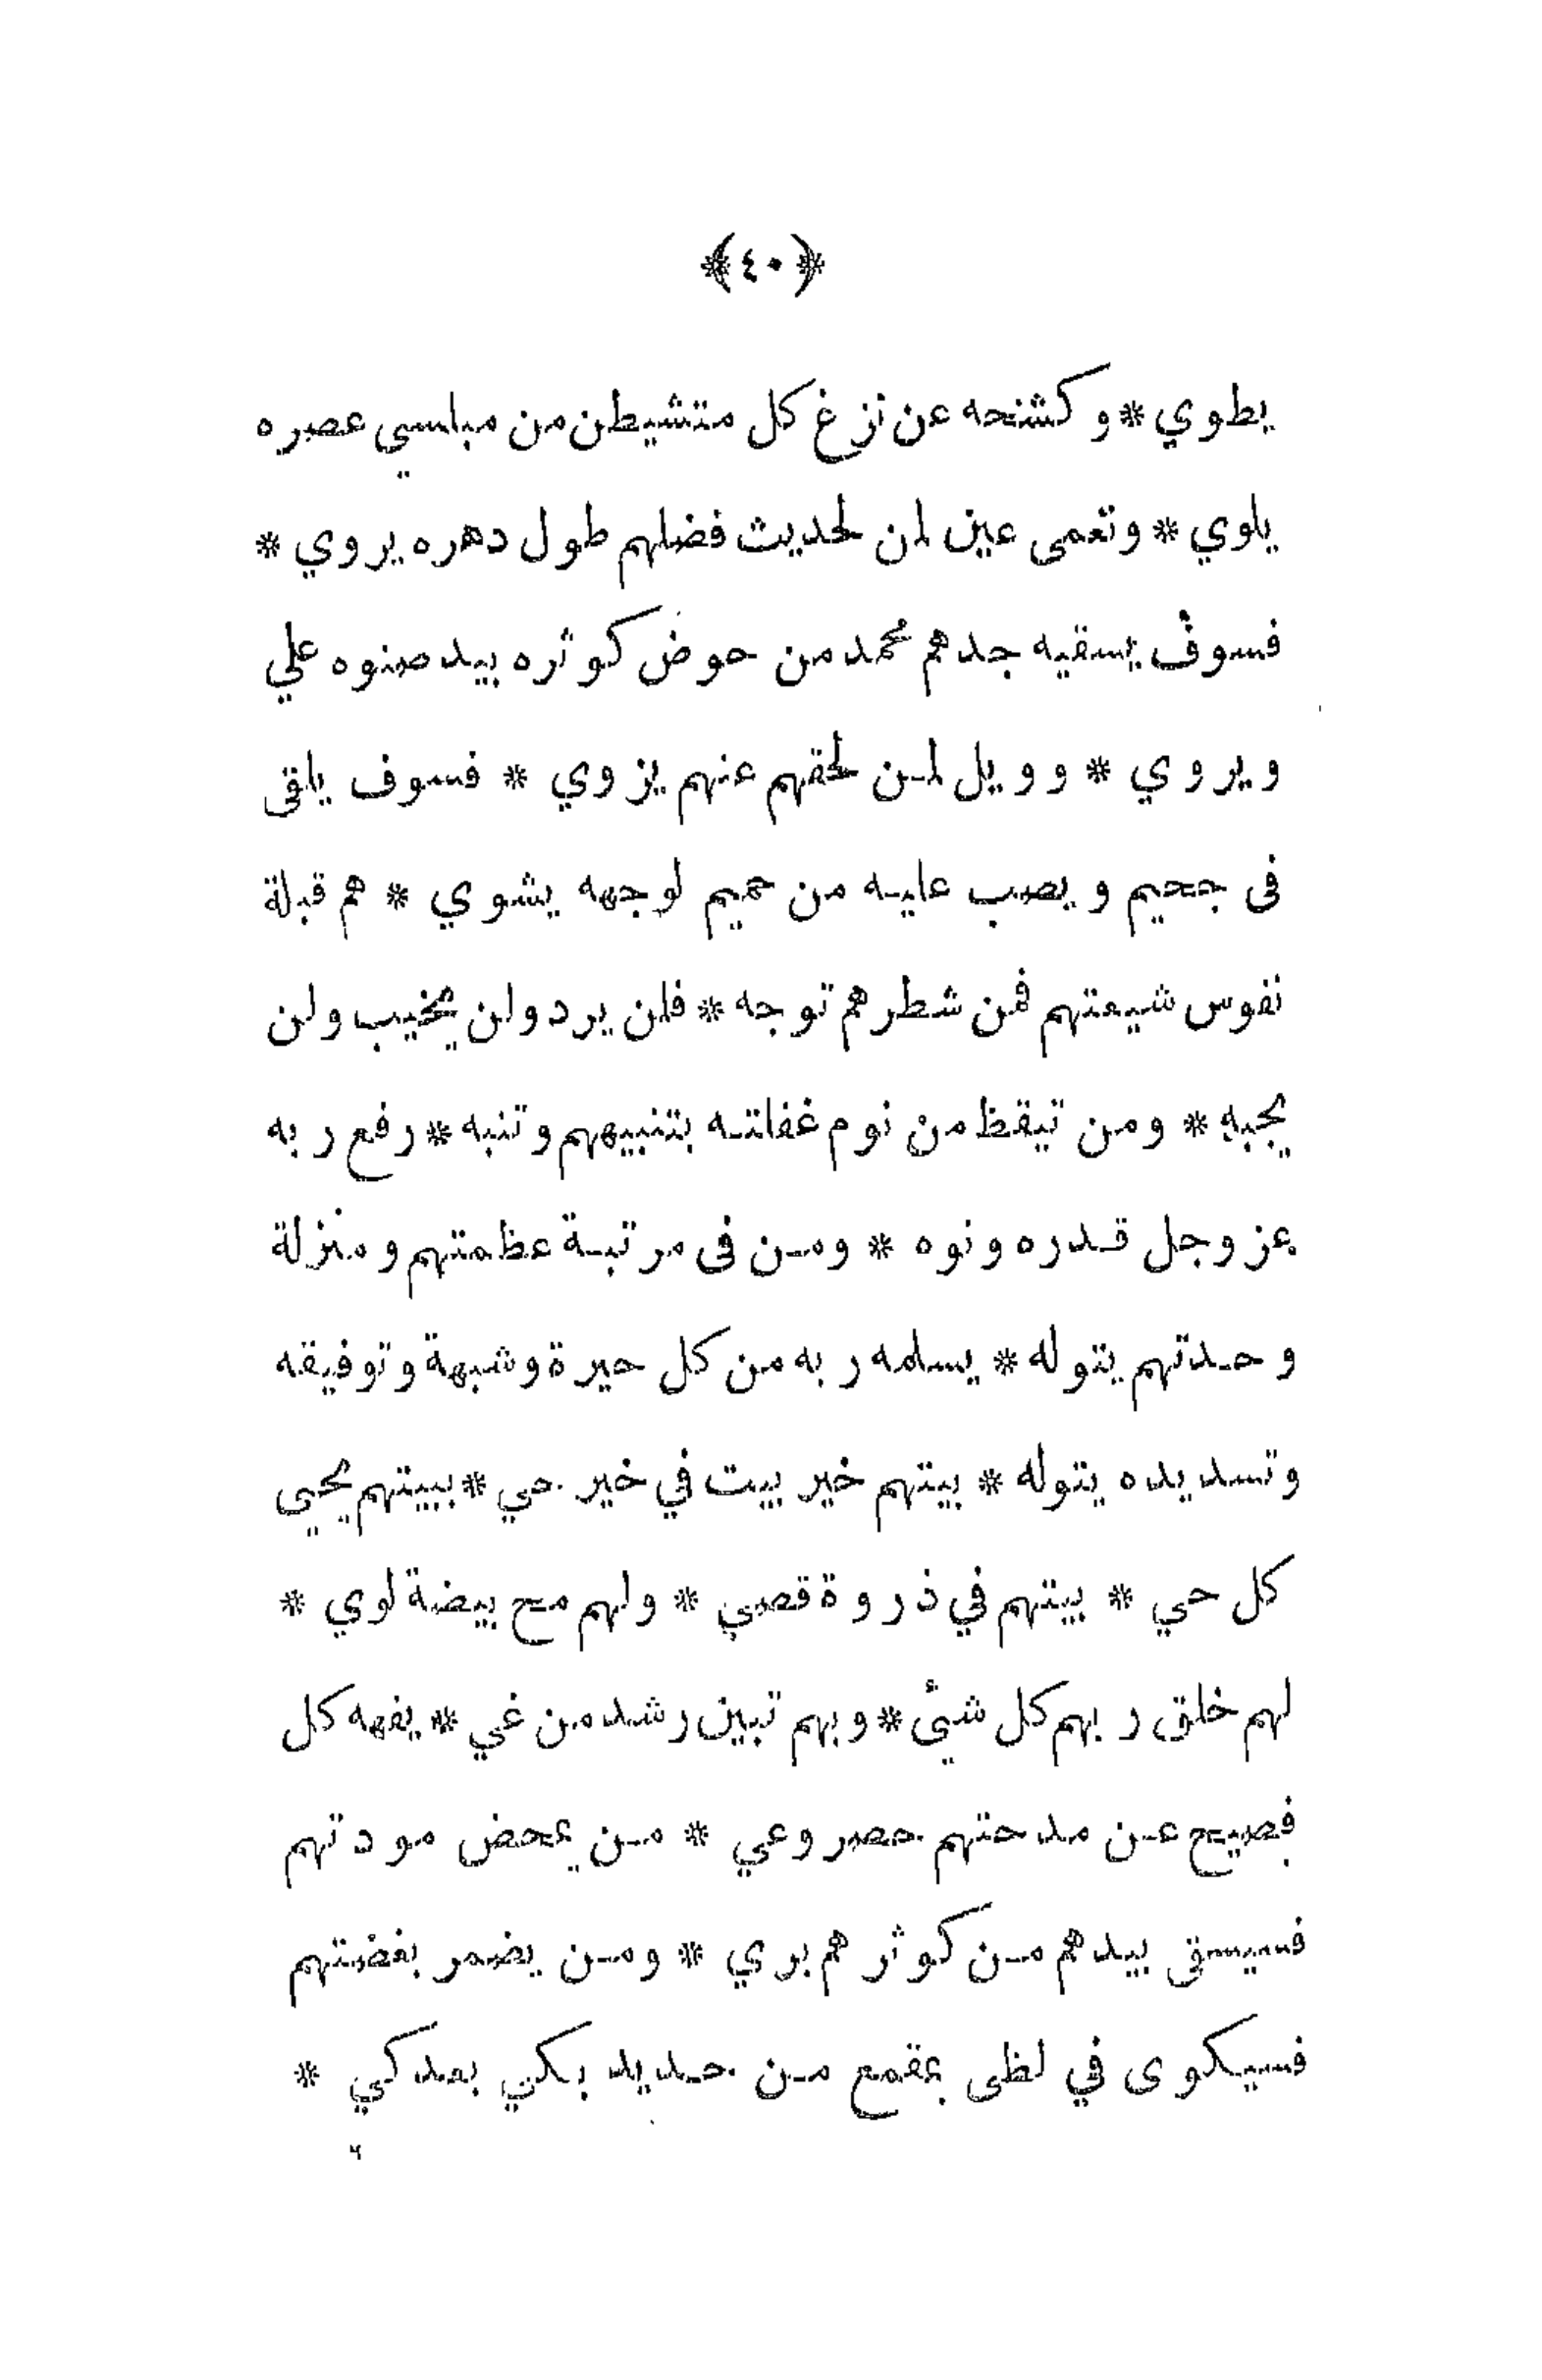 ﴿٤٠﴾
يطوي * وكشحه عن نزغ كل متشيطن من مبلسي عصره
يلوي * ونعمى عين لمن لحديث فضلهم طول دهره يروي *
فسوف يسقيه جدهم محمد من حوض كوثره بيد صنوه علي
ويروي * وويل لمن لحقهم عنهم يزوي * فسوف يلقى
فى جحيم ويصب عليه من حميم لوجهه يشوي * هم قبلة
نفوس شيعتهم فمن شطرهم توجه * فلن يرد ولن يخيب ولن
يجبه * ومن تيقظ من نوم غفلته بتنبيههم وتنبه * رفع ربه
عز وجل قدره ونوه * ومن فى مرتبة عظمتهم ومنزلة
وحدتهم يتوله * يسلمه ربه من كل حيرة وشبهة وتوفيقه
وتسديده يتوله * بيتهم خير بيت في خير حي * ببيتهم يحيي
كل حي * بيتهم في ذروة قصي * ولهم مح بيضة لوي *
لهم خلق ربهم كل شئ * وبهم تبين رشد من غي * يفهه كل
فصيح عن مدحتهم حصر وعي * من يمحض مودتهم
فسيسقى بيدهم من كوثرهم بري * ومن يضمر بغضتهم
فسيكوى في لظى بمقمع من حديد بكي بعد كي *
٦